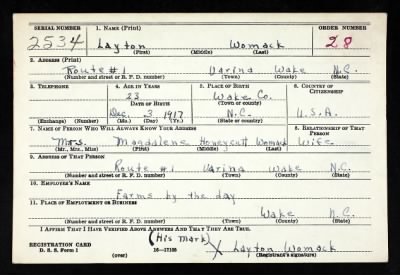 SERIAL NUMBER 1. NAME (Print) ORDER NUMBER
2534 Layton Womack 28
(First) (Middle) (Last)
2. ADDRESS (Print)
Route #1 Varina Wake N.C.
(Number and street or R. F. D. number) (Town) (County) (State)
3. TELEPHONE 4. AGE IN YEARS 5. PLACE OF BIRTH 6. COUNTRY OF CITIZENSHIP
23 Wake Co.
DATE OF BIRTH (Town or county)
Dec. 3 1917 N.C. U.S.A.
(Exchange) (Number) (Mo.) (Day) (Yr.) (State or country)
7. NAME OF PERSON WHO WILL ALWAYS KNOW YOUR ADDRESS 8. RELATIONSHIP OF THAT PERSON
Mrs. Magdalene Honeycutt Womack Wife
(Mr., Mrs., Miss) (First) (Middle) (Last)
9. ADDRESS OF THAT PERSON
Route #1 Varina Wake N.C.
(Number and street or R. F. D. number) (Town) (County) (State)
10. EMPLOYER'S NAME
Farms by the day
11. PLACE OF EMPLOYMENT OR BUSINESS
Wake N.C.
(Number and street or R. F. D. number) (Town) (County) (State)
I AFFIRM THAT I HAVE VERIFIED ABOVE ANSWERS AND THAT THEY ARE TRUE.
(His mark)
REGISTRATION CARD
D. S. S. Form 1 16—17105 X Layton Womack
(over) (Registrant's signature)